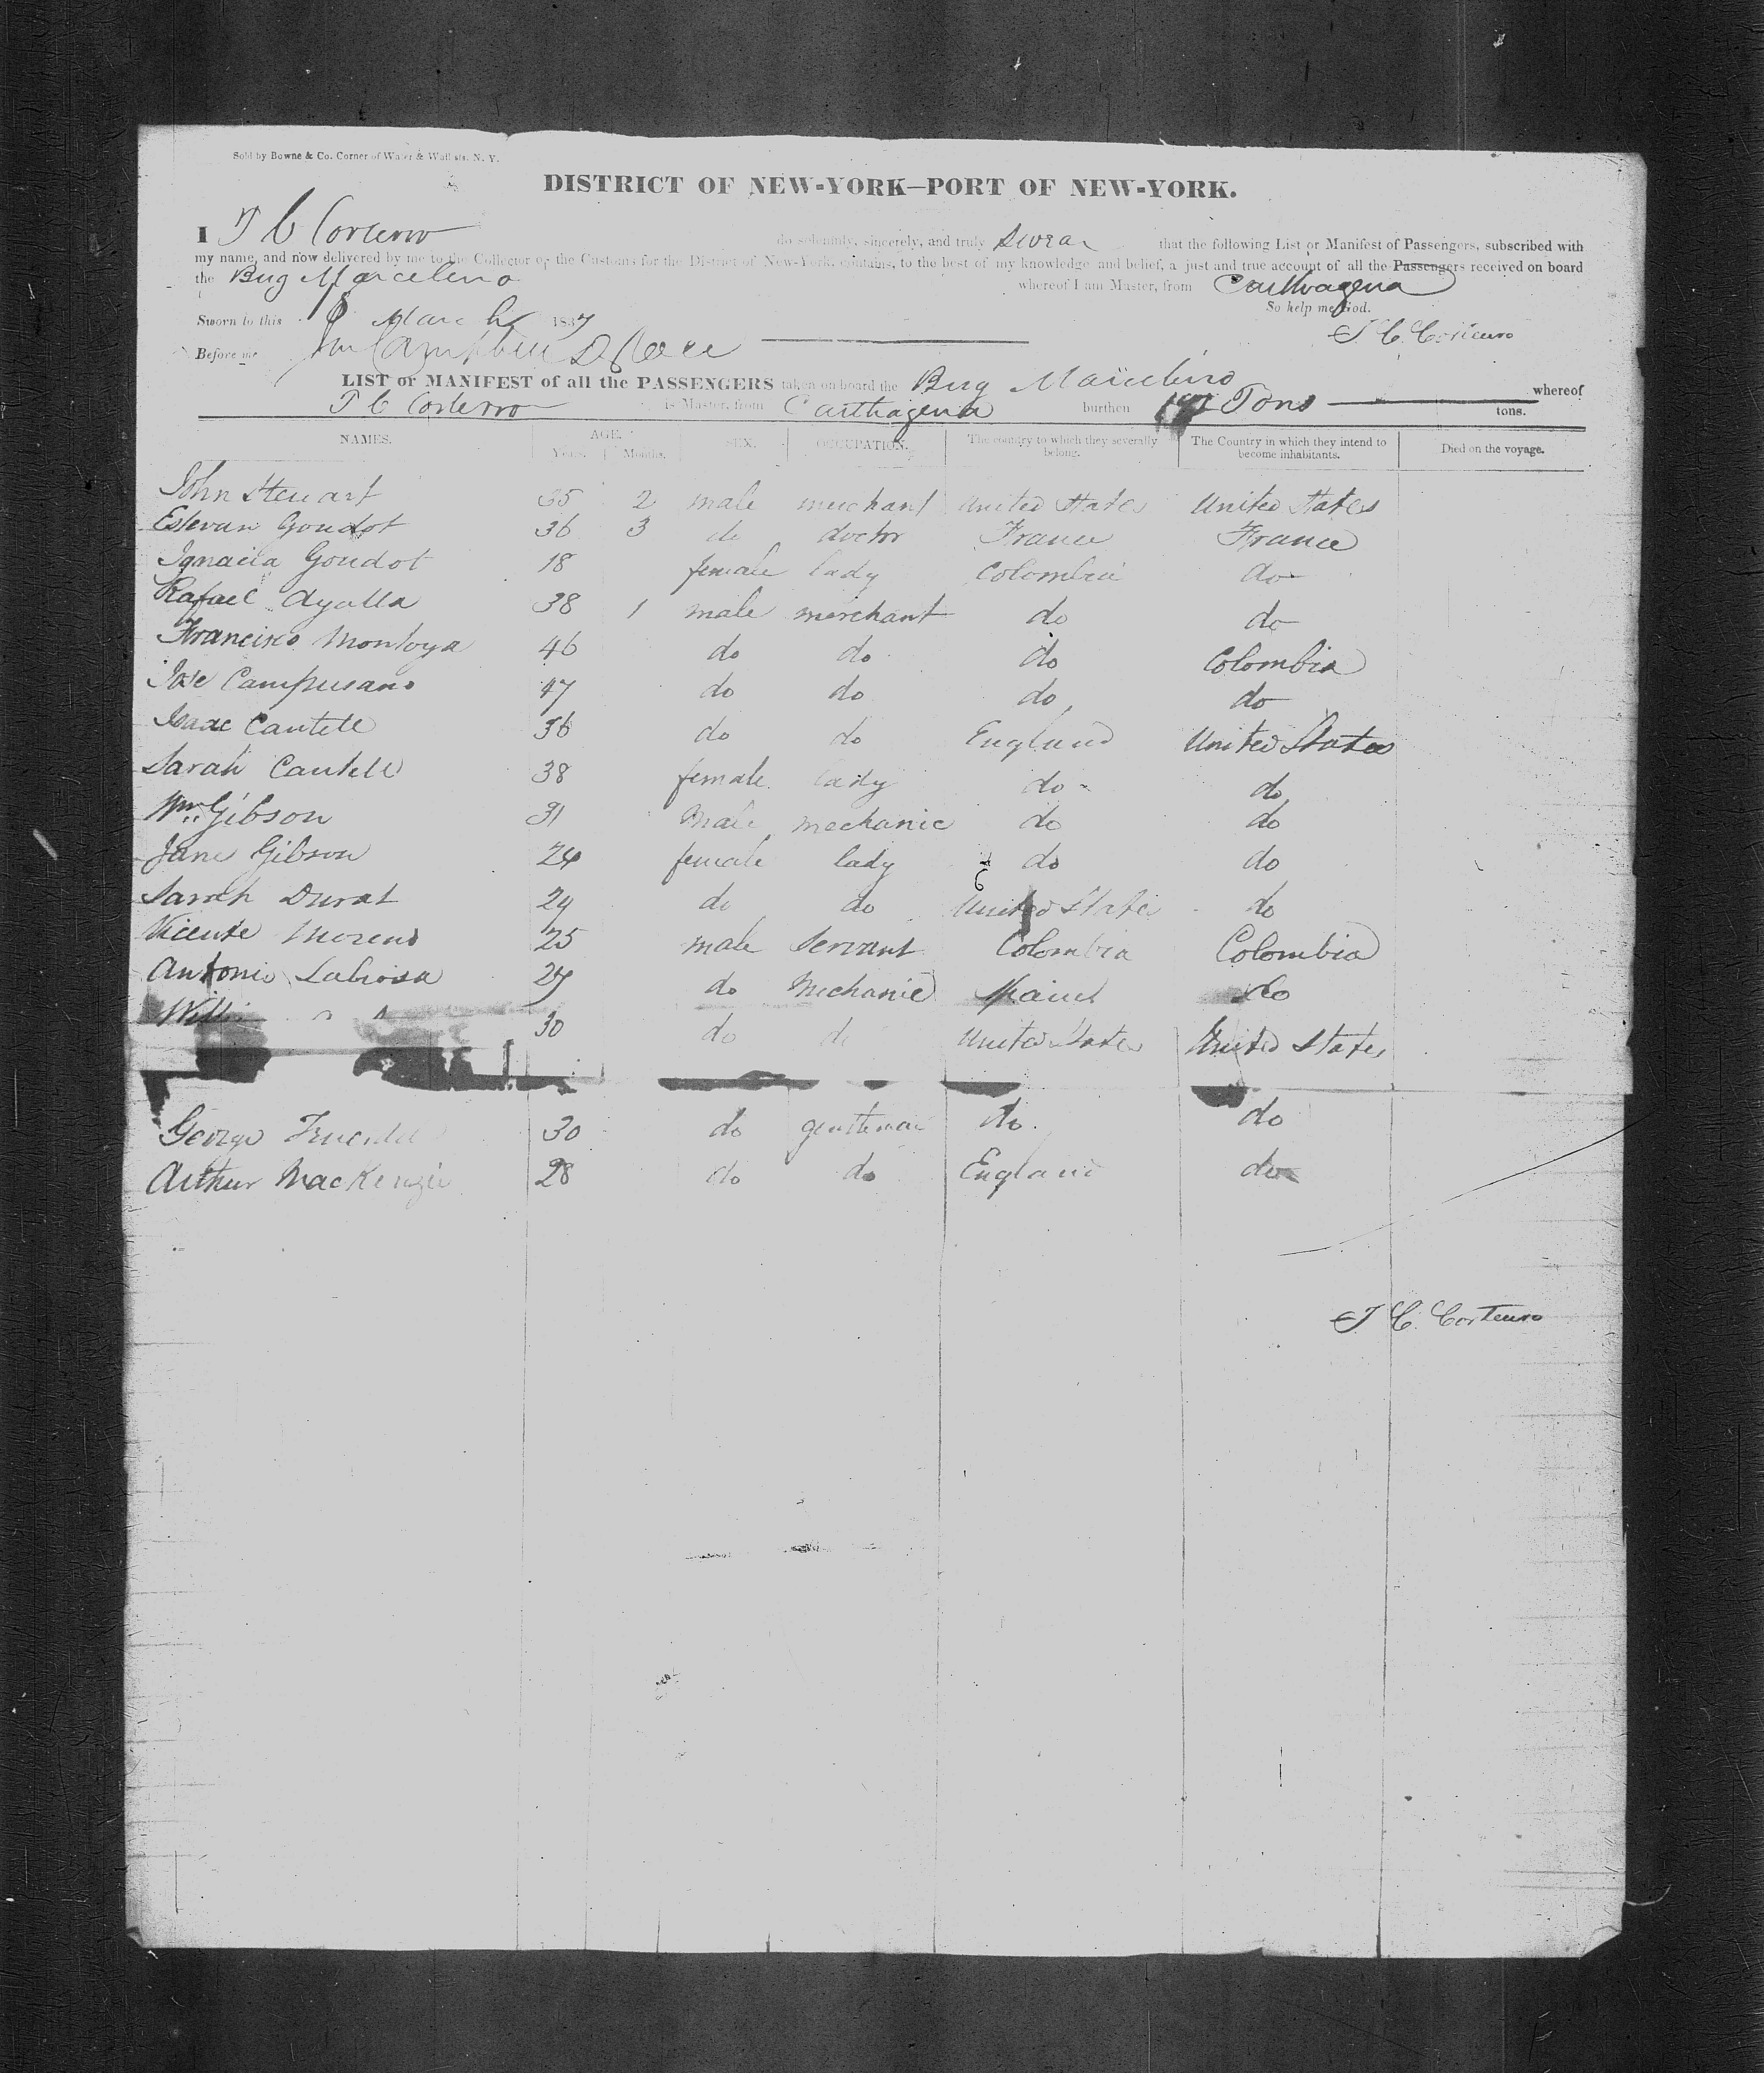 Sold by Bowne & Co. Corner of Water & Wall sts. N. Y.
DISTRICT OF NEW-YORK—PORT OF NEW-YORK.
I T C do solemnly, sincerely, and truly swear that the following List or Manifest of Passengers, subscribed with
my name, and now delivered by me to the Collector of the Customs for the District of New-York, contains, to the best of my knowledge and belief, a just and true account of all the Passengers received on board
the Brig Marcelino whereof I am Master, from Carthagena
So help me God.
Sworn to this March 1837
T. C.
Before me
LIST or MANIFEST of all the PASSENGERS taken on board the Brig Marcelino whereof
T C is Master, from Carthagena burthen Tons tons.
NAMES. AGE. Years. Months. SEX. OCCUPATION. The country to which they severally belong. The Country in which they intend to become inhabitants. Died on the voyage.
John Stewart 35 2 male merchant United States United States
Estevan Goudot 36 3 do doctor France France
Ignacia Goudot 18 female lady Colombia do
Rafael Ayalla 38 1 male merchant do do
Francisco Montoya 46 do do do Colombia
Jose Campusano 47 do do do do
Isaac Cantell 36 do do England United States
Sarah Cantell 38 female lady do do
Wm. Gibson 31 Male mechanic do do
Jane Gibson 24 female lady do do
Sarah Durat 24 do do United States do
Vicente Moreno 25 male Servant Colombia Colombia
Antonio 27 do Mechanic do
30 do do United States United States
George 30 do gentleman do do
Arthur MacKenzie 28 do do England do
T C